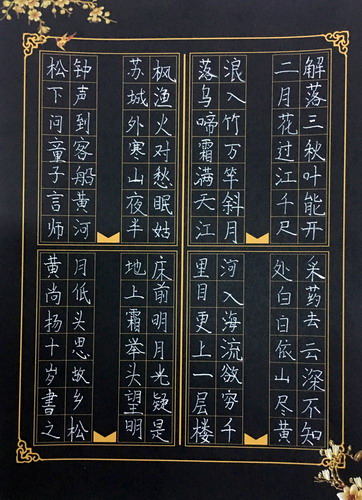 解落三秋叶能开
二月花过江千尺
浪入竹万竿斜月
落乌啼霜满天江
枫渔火对愁眠姑
苏城外寒山夜半
钟声到客船黄河
松下问童子言师
采药去云深不知
处白日依山尽黄
河入海流欲穷千
里目更上一层楼
床前明月光疑是
地上霜举头望明
月低头思故乡松
黄尚扬十岁書之